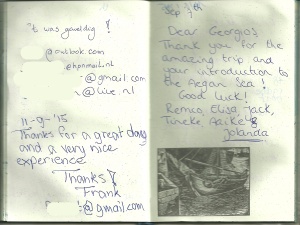 't was geweldig!
@outlook.com
@hpnmail.nl
@gmail.com
@live.nl
11-9-'15
Thanks for a great day
and a very nice
experience
Thanks!
Frank
@gmail.com
Sep 7th
Dear Georgios
Thank you for the
amazing trip and
your introduction to
the Aegan Sea!
Good luck!
Remco, Elisa, Jack,
Tineke
Jolanda